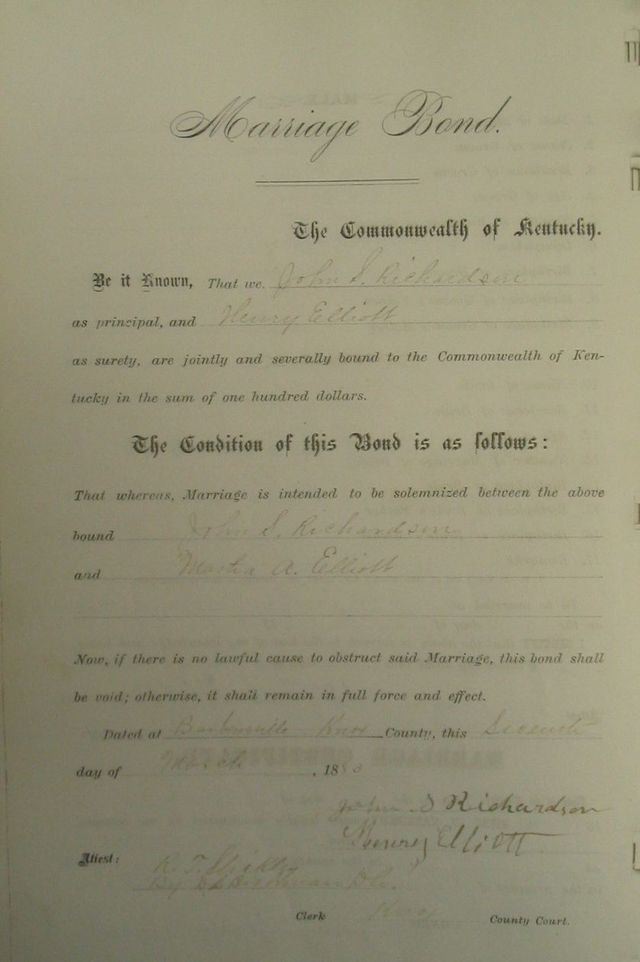 Marriage Bond.
The Commonwealth of Kentucky.
Be it Known, That we John S. Richardson
as principal, and Henry Elliott
as surety, are jointly and severally bound to the Commonwealth of Ken-
tucky in the sum of one hundred dollars.
The Condition of this Bond is as follows:
That whereas, Marriage is intended to be solemnized between the above
bound John S. Richardson
and A. Elliott
Now, if there is no lawful cause to obstruct said Marriage, this bond shall
be void; otherwise, it shall remain in full force and effect.
Dated at Barbourville Knox County, this Seventh
day of March, 188
John S Richardson
Henry Elliott
Attest: R. T.
By
Clerk Knox County Court.